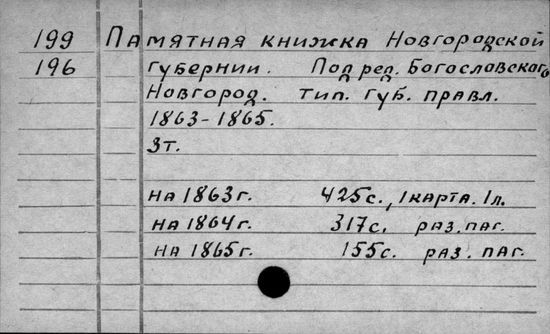 199 Памятная книжка Новгородской
196 губернии. Под ред. Богословского
Новгород. тип. губ. правл.
1863-1865.
3т.
на 1863г. 425с., 1 карта. 1л.
на 1864г. 317с. раз. паг.
на 1865г. 155с. раз. паг.